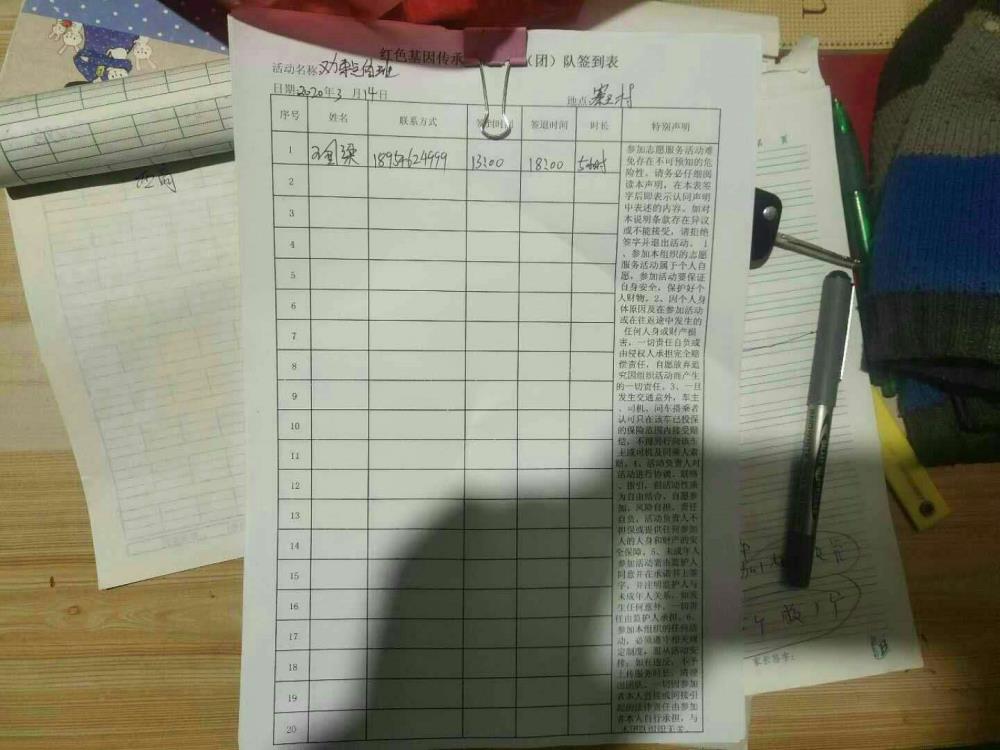 红色基因传承
（团）队签到表
活动名称
日期:2020年3月14日
地点
序号 姓名 联系方式 签到时间 签退时间 时长 特别声明
1 18954624999 13:00 18:00 5小时
2
3
4
5
6
7
8
9
10
11
12
13
14
15
16
17
18
19
20
参加志愿服务活动难
免存在不可预知的危
险性。请务必仔细阅
读本声明，在本表签
字后即表示认同声明
中表述的内容。如对
本说明条款存在异议
或不能接受，请拒绝
签字并退出活动。1
、参加本组织的志愿
服务活动属于个人自
愿，参加活动要保证
自身安全，保护好个
人财物。2、因个人身
体原因及在参加活动
或在往返途中发生的
任何人身或财产损
害，一切责任自负或
由侵权人承担完全赔
偿责任，自愿放弃追
究因组织活动而产生
的一切责任。3、一旦
发生交通意外，车主
、司机、同车搭乘者
认可只在该车已投保
的保险范围内接受赔
偿，不得另行向该车
主或司机及同乘人索
赔。4、活动负责人对
活动进行协调、联络
、指引，但活动性质
为自由结合、自愿参
加、风险自担、责任
自负，活动负责人不
担保或提供任何参加
人的人身和财产的安
全保障。5、未成年人
参加活动需由监护人
同意并在承诺书上签
字，并注明监护人与
未成年人关系，如发
生任何意外，一切责
任由监护人承担。6、
参加本组织的任何活
动，必须遵守相关规
定制度，服从活动安
排；如有违反，不予
上传服务时长，清理
出团队。一切因参加
者本人直接或间接引
起的法律责任由参加
者本人自行承担，与
家长签字：